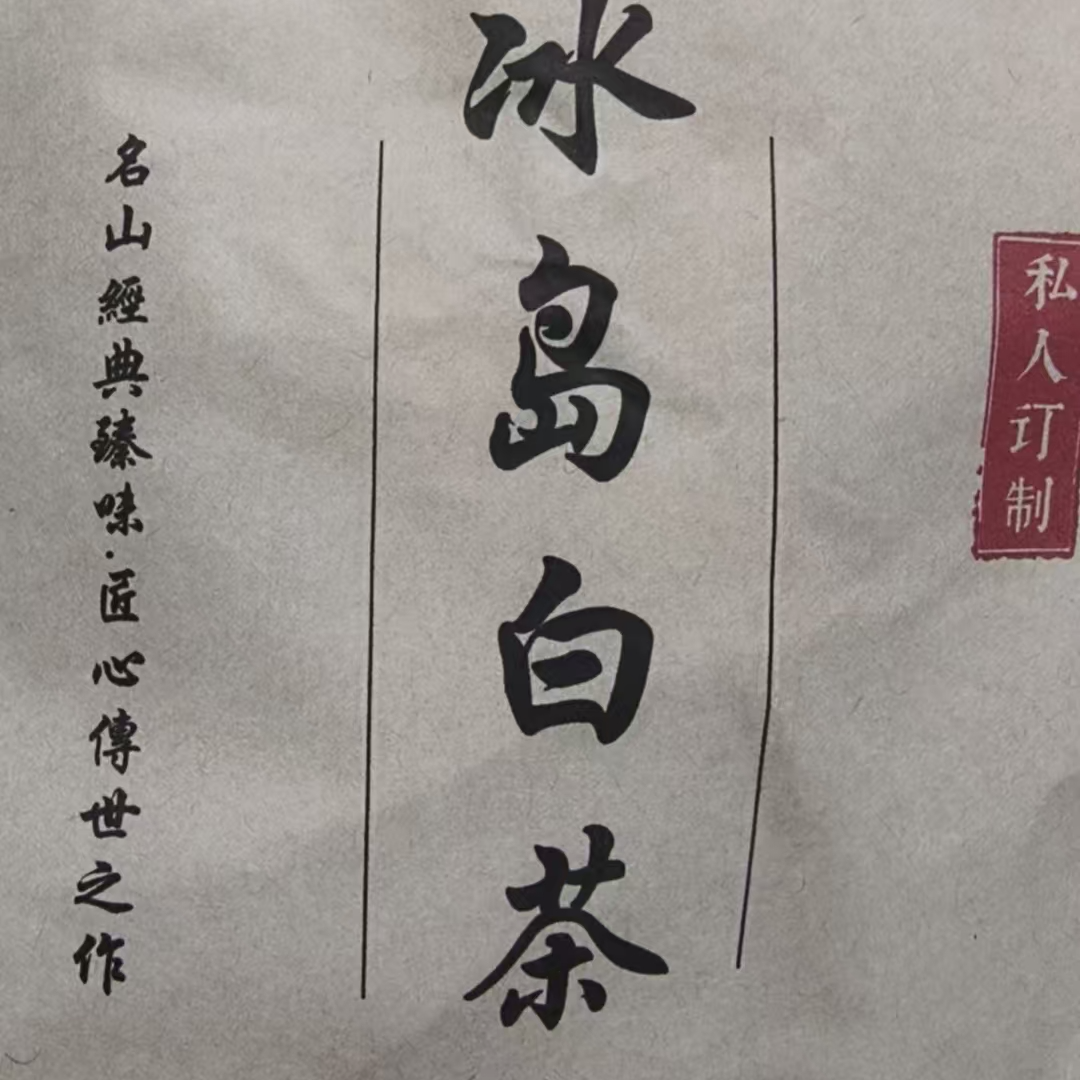 私人订制
冰岛白茶
名山經典臻味·匠心傳世之作